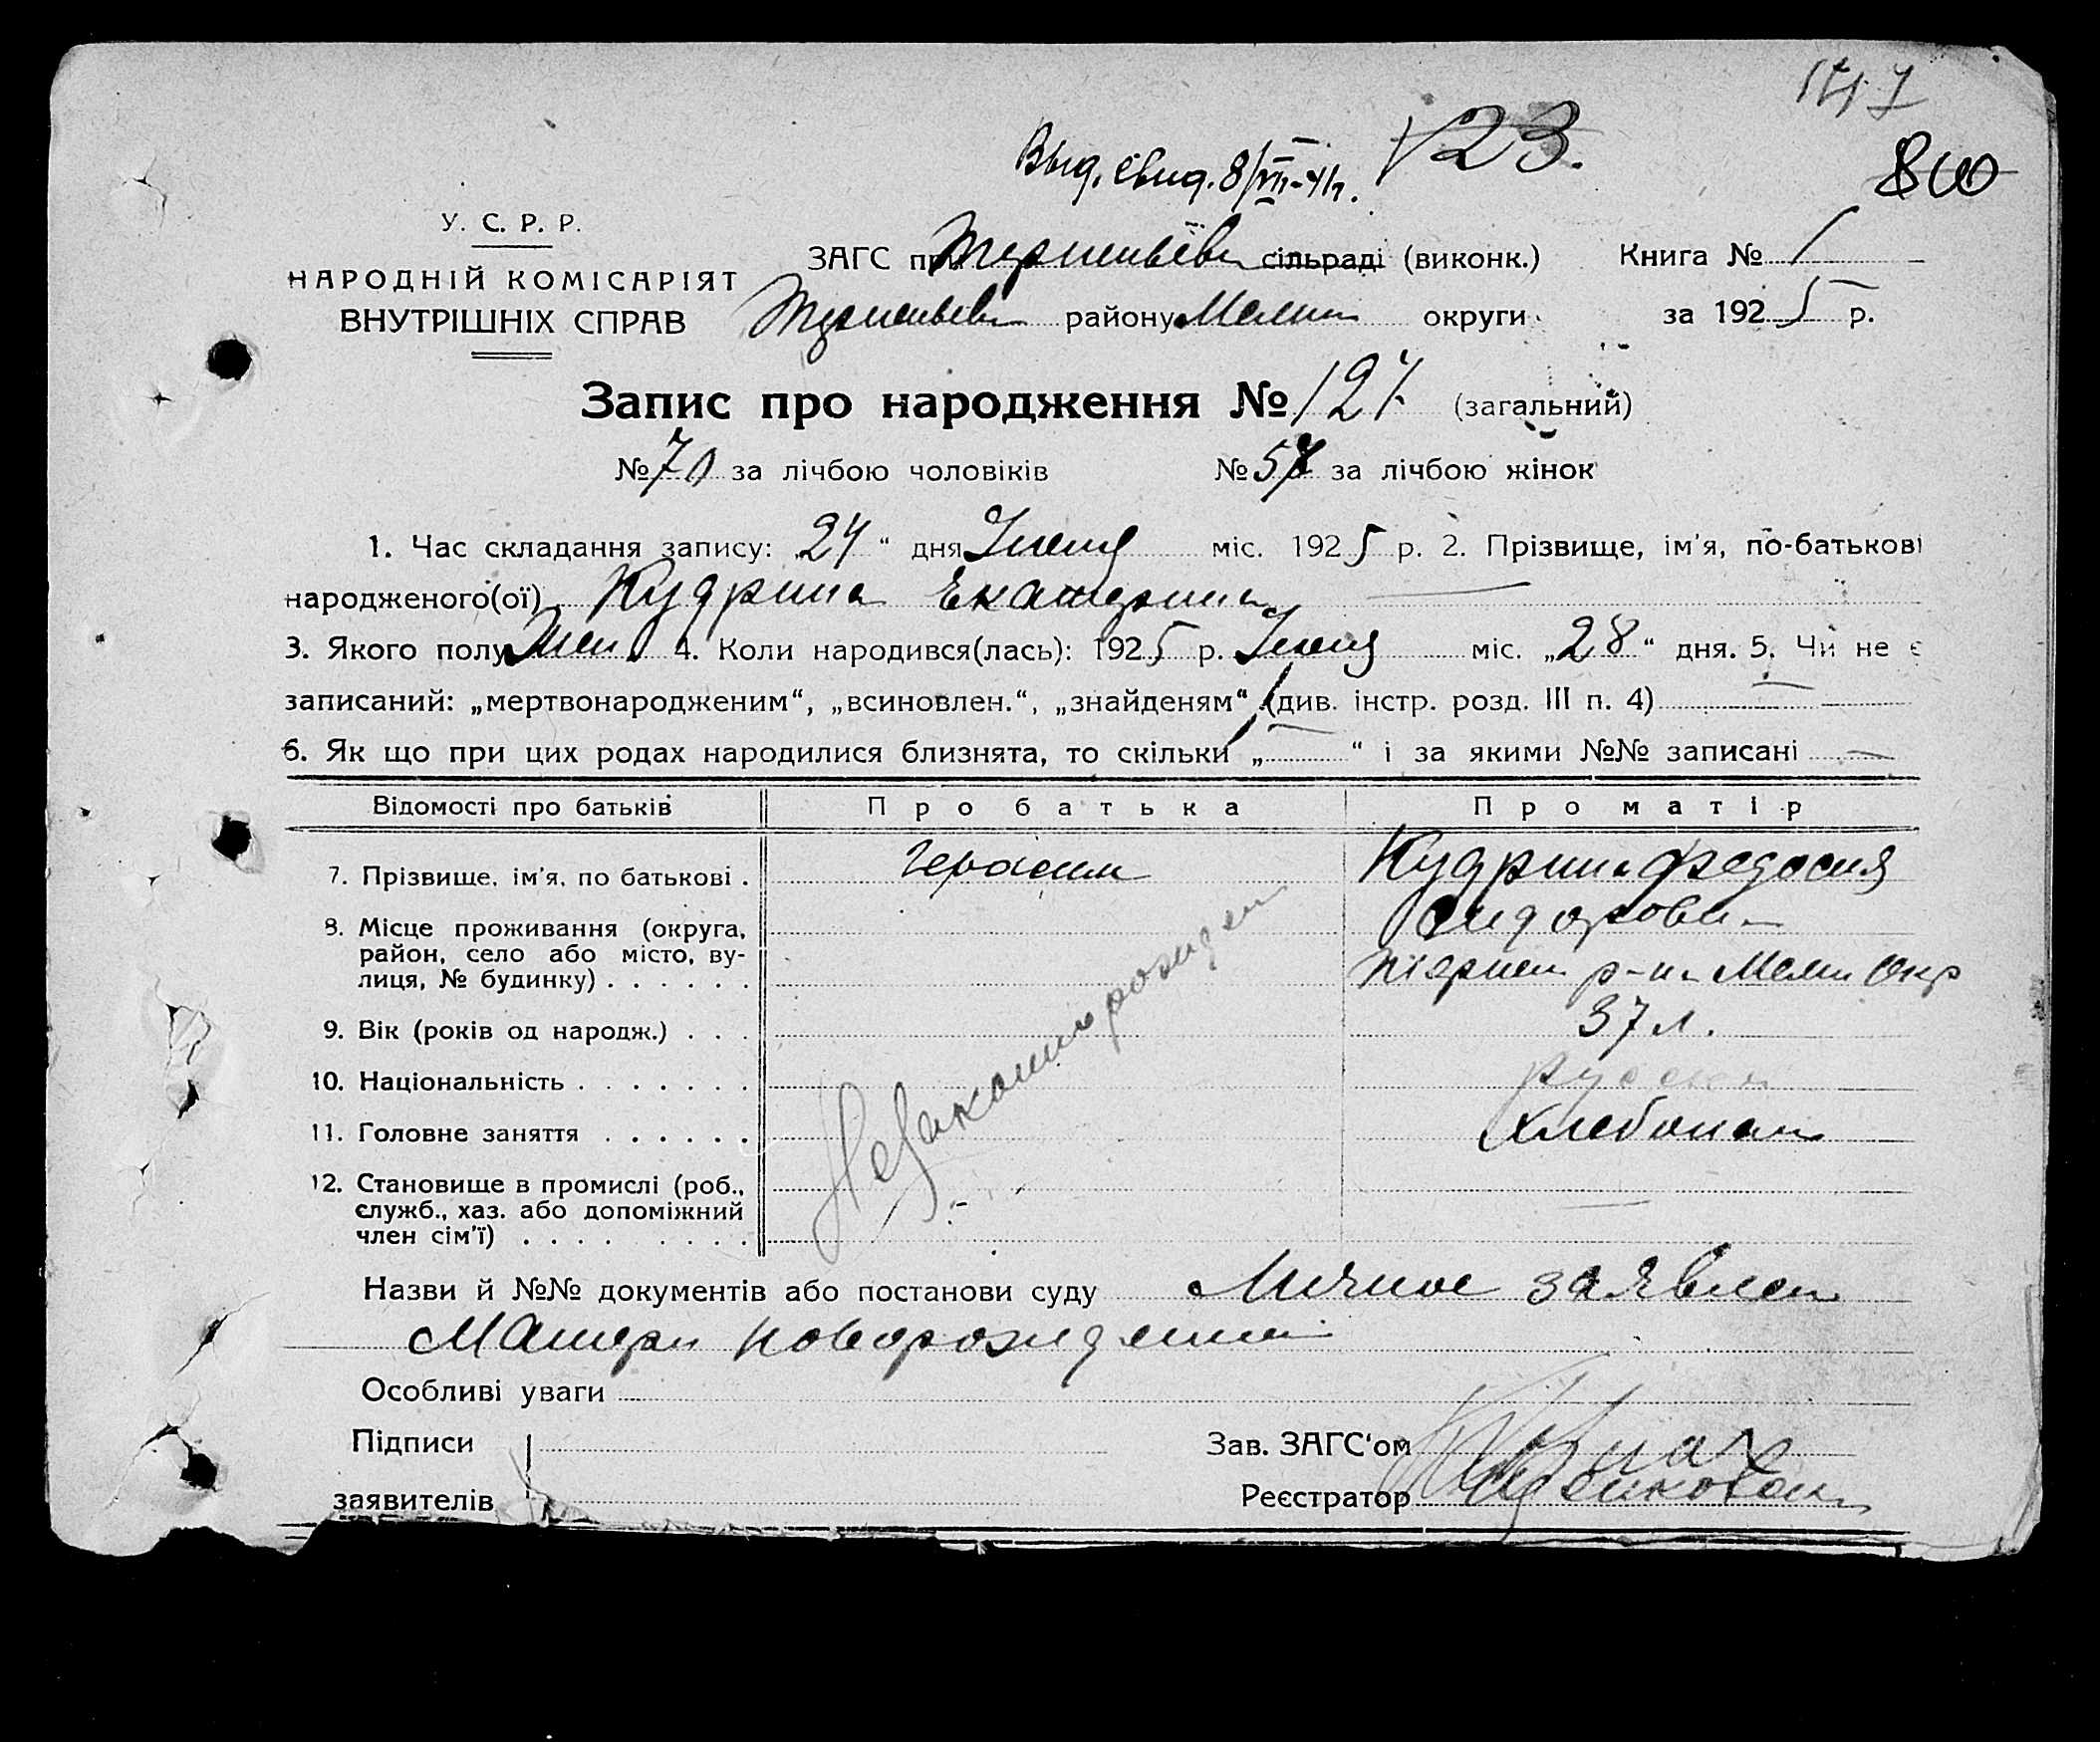 147
Выд. свид. 8/VII-41г. √23.
800
У. С. Р. Р.
НАРОДНІЙ КОМІСАРІЯТ
ВНУТРІШНІХ СПРАВ
ЗАГС при сільраді (виконк.) Книга № 1
району Мелит округи за 1925 р.
Запис про народження № 127 (загальний)
№ 70 за лічбою чоловіків № 57 за лічбою жінок
1. Час складання запису: „24“ дня міс. 1925 р. 2. Прізвище, ім'я, по-батькові
народженого(ої) Кудрина Екатерина —
3. Якого полу Жен. 4. Коли народився(лась): 1925 р. міс. „28“ дня. 5. Чи не є
записаний: „мертвонародженим“, „всиновлен.“, „знайденям“ (див. інстр. розд. III п. 4) —
6. Як що при цих родах народилися близнята, то скільки „—“ і за якими №№ записані —
Відомості про батьків Про батька Про матір
7. Прізвище, ім'я, по батькові . Герасим Кудрина Федосия
Сидоровн
8. Місце проживання (округа,
район, село або місто, ву-
лиця, № будинку) . . . . . . р-на Мелит Окр
9. Вік (років од народж.) . . . 37 л.
10. Національність . . . . . . . русская
11. Головне заняття . . . . . . хлебопаш
Незаконнорожден
12. Становище в промислі (роб.,
служб., хаз. або допоміжний
член сім'ї) . . . . . . . . —
Назви й №№ документів або постанови суду Личное заявлен
Матери новорожденной
Особливі уваги
Підписи Зав. ЗАГС'ом
заявителів Реєстратор